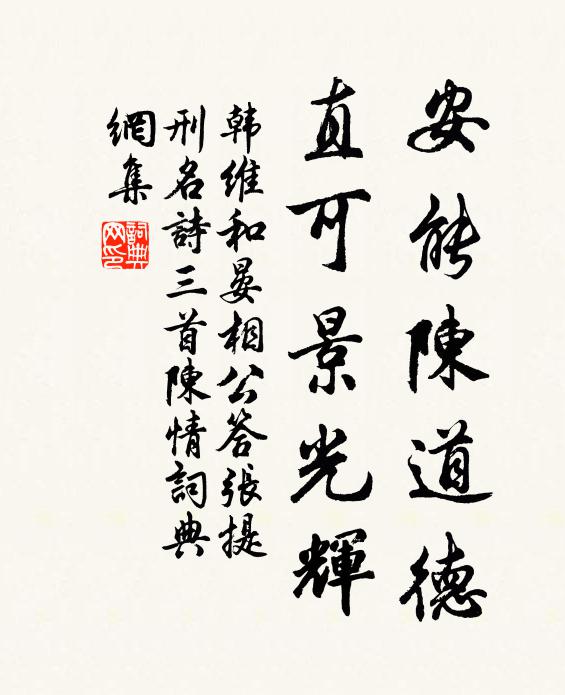 安能陳道德
直可景光輝
韩維和晏相公答張提
刑名詩三首陳情詞典
網集
詞典
网印